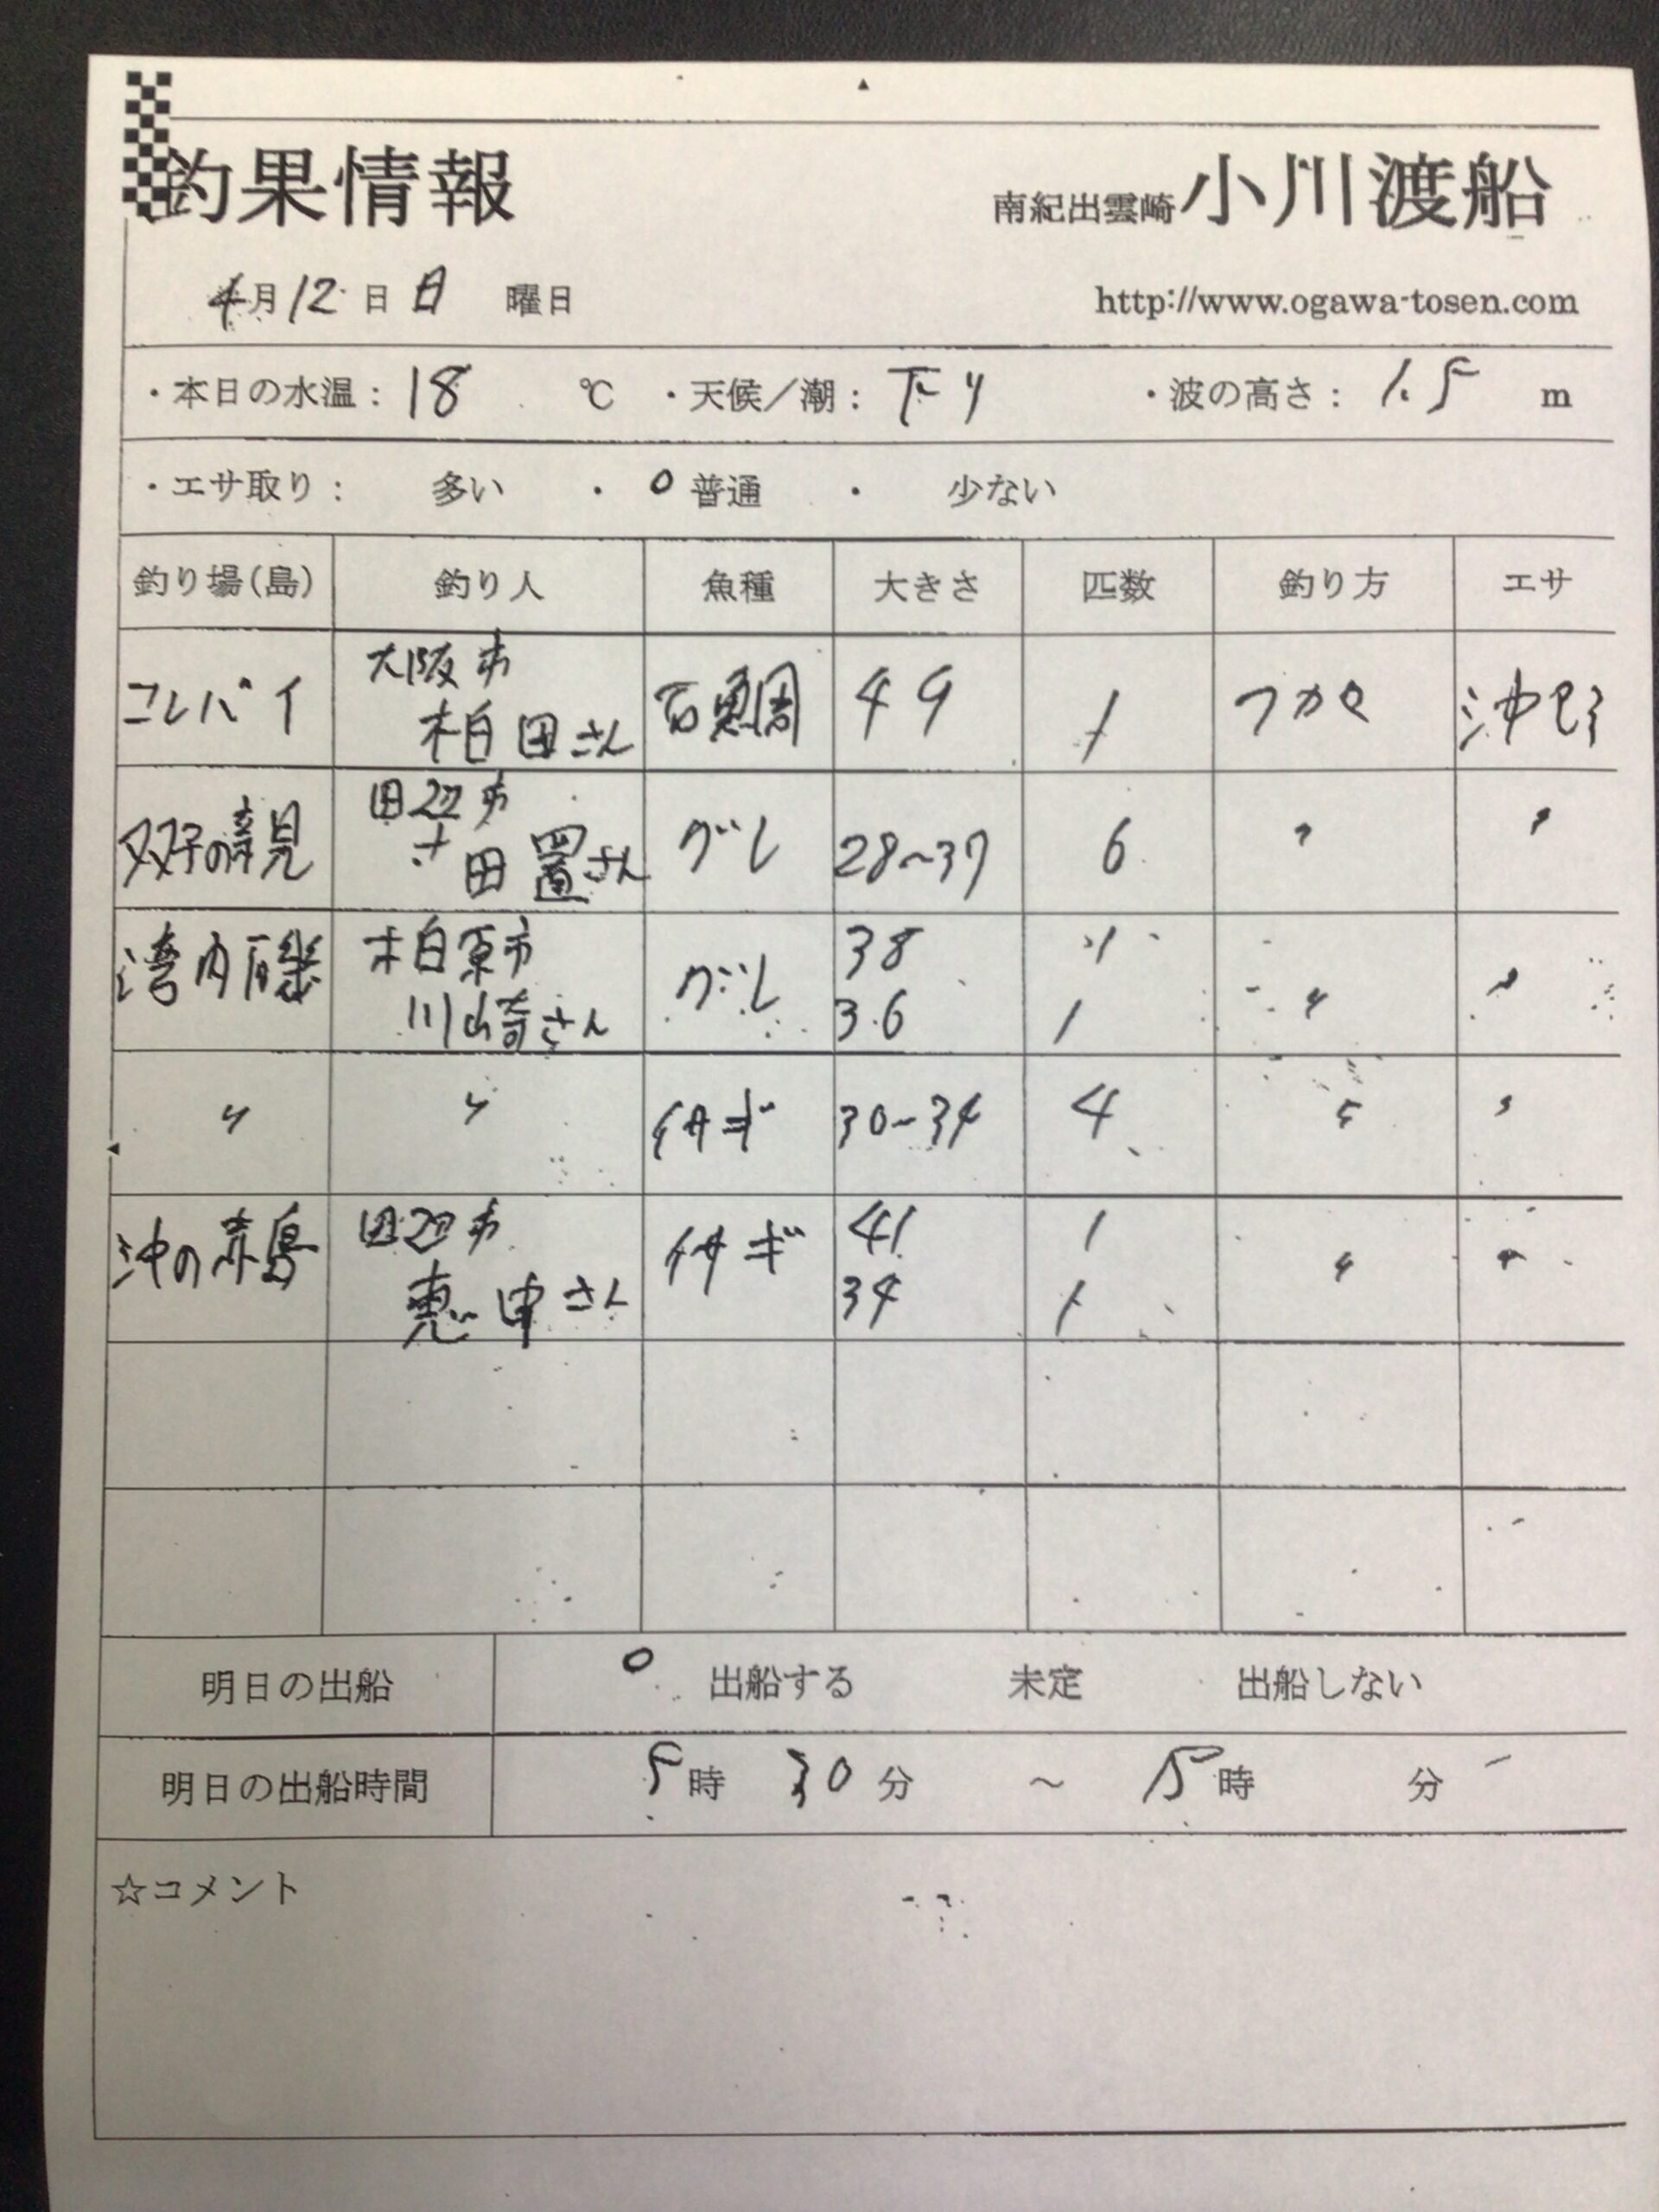 釣果情報
南紀出雲崎 小川渡船
4月12日 日 曜日
http://www.ogawa-tosen.com
・本日の水温：18 ℃ ・天候／潮：下り ・波の高さ：1.5 m
・エサ取り： 多い ・ ○普通 ・ 少ない
釣り場(島) 釣り人 魚種 大きさ 匹数 釣り方 エサ
コレバイ 大阪市 柏田さん 石鯛 49 1 フカセ
双子の親 田辺市 田置さん グレ 28~37 6 〃 〃
湾内磯 柏原市 川崎さん グレ 38 1 〃 〃
36 1
〃 〃 イサギ 30~34 4 〃 〃
沖の赤島 田辺市 さん イサギ 41 1 〃 〃
34 1
明日の出船 ○ 出船する 未定 出船しない
明日の出船時間 5時 30分 ～ 15時 分
☆コメント